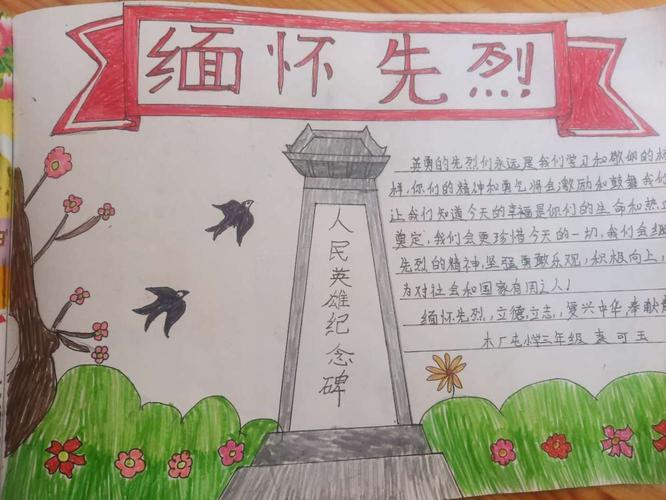 缅怀先烈
人民英雄纪念碑
英勇的先烈们永远是我们学习和敬仰的榜
样,你们的精神和勇气将会激励和鼓舞我们
让我们知道今天的幸福是你们的生命和热
奠定,我们会更珍惜今天的一切,我们会继
先烈的精神,坚强勇敢乐观,积极向上,
为对社会和国家有用之人!
缅怀先烈,立德立志,复兴中华,奉献
木厂屯小学三年级 袁可玉